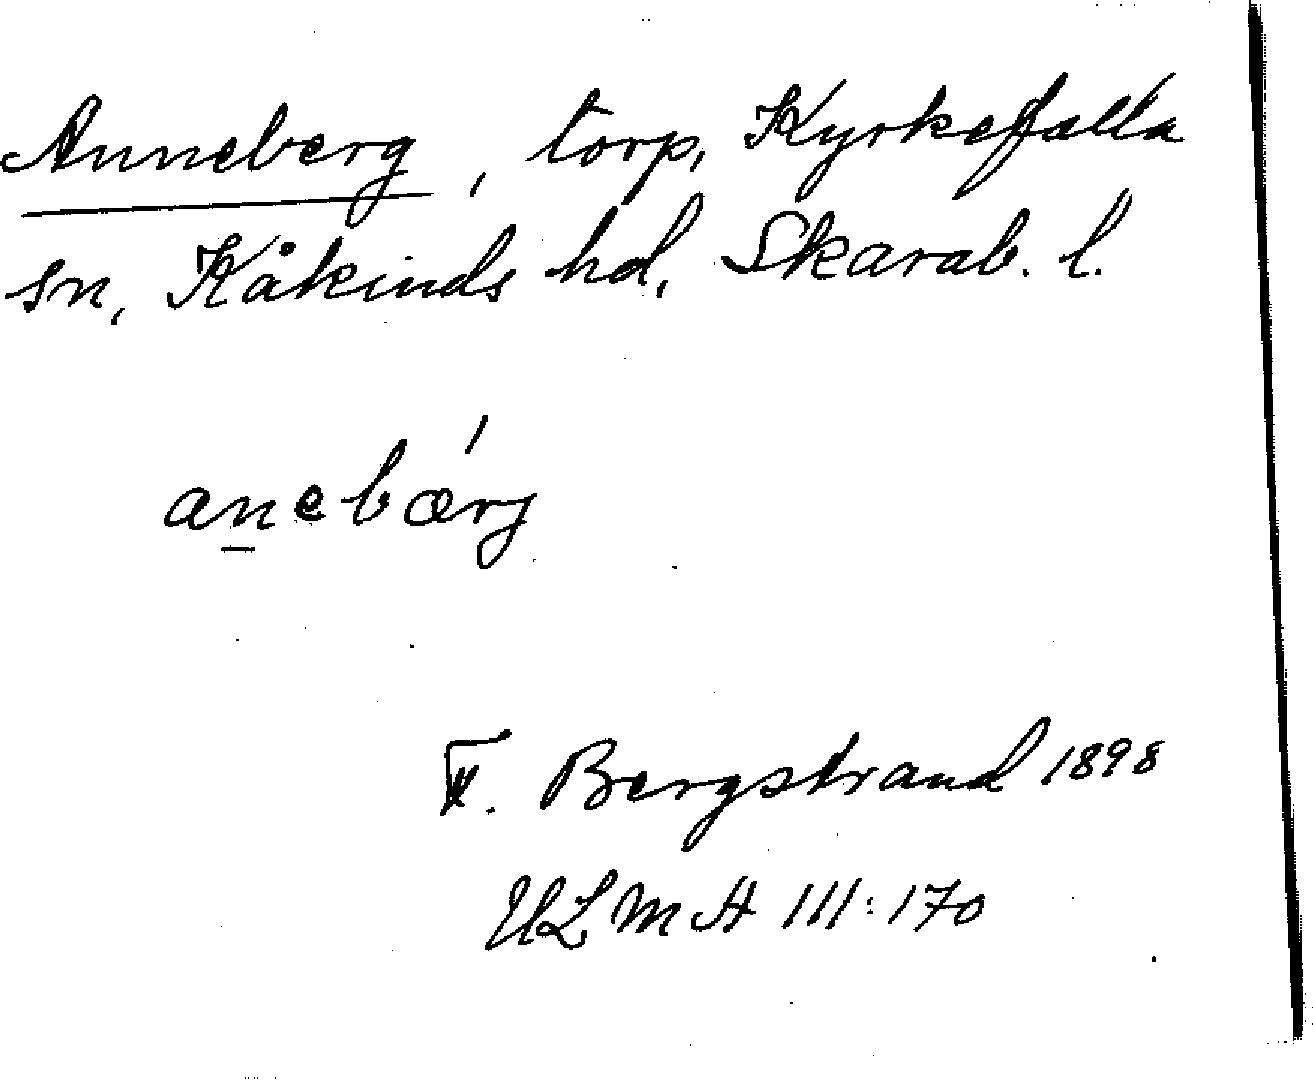 Anneberg, torp, Kyrkefalla
sn, Kåkinds hd, Skarab. l.
anebærj
F. Bergstrand 1898
ULMA 111:170